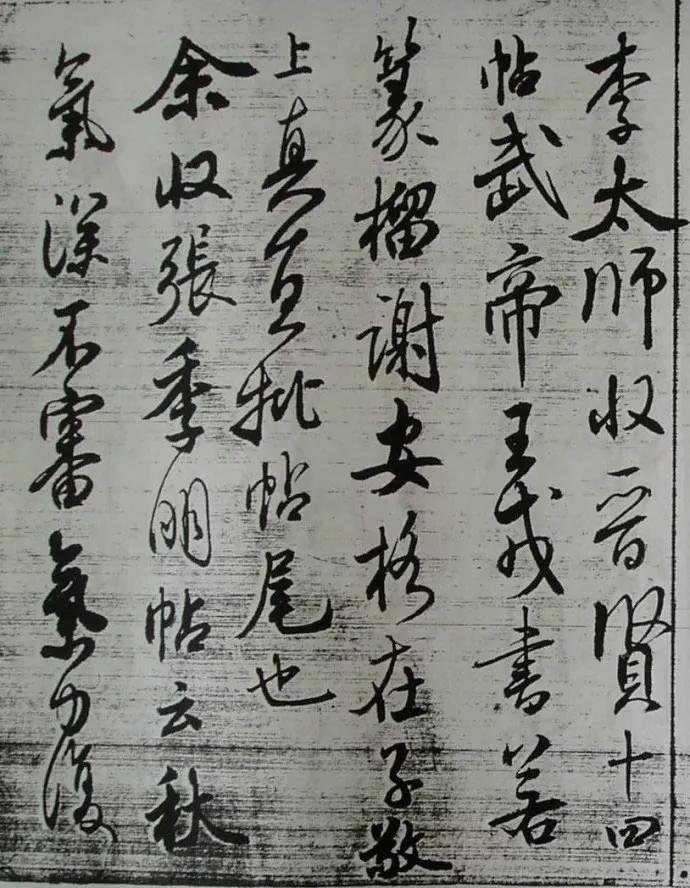 李太师收晋賢十四
帖武帝王戎書若
篆榴谢安格在子敬
上真宜批帖尾也
余收張季明帖云秋
氣深不審氣力復